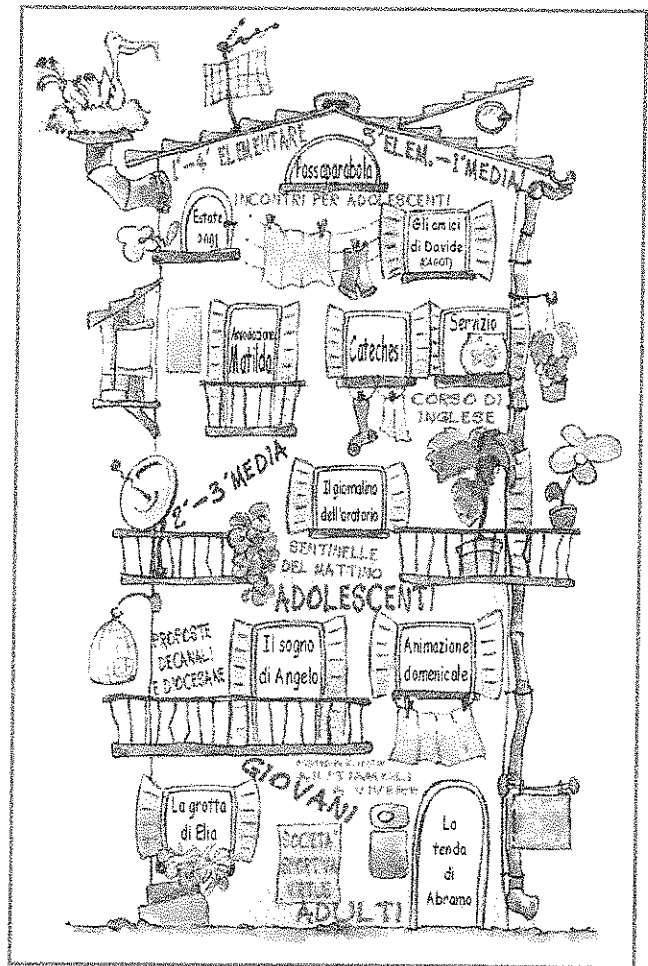 1°-4° ELEMENTARE
5°ELEM.-1°MEDIA
Passaparabola
INCONTRI PER ADOLESCENTI
Estate
Gli amici
di Davide
Associazione
Matilda
Catechesi
Servizio
CORSO DI
INGLESE
2°-3°MEDIA
Il giornalino
dell'oratorio
SENTINELLE
DEL MATTINO
ADOLESCENTI
PROPOSTE
DECANALI
E DIOCESANE
Il sogno
di Angelo
Animazione
domenicale
GIOVANI
AIUTIAMOLI
A VIVERE
La grotta
di Elia
SOCIETA'
SPORTIVA
La
tenda
di
Abramo
ADULTI